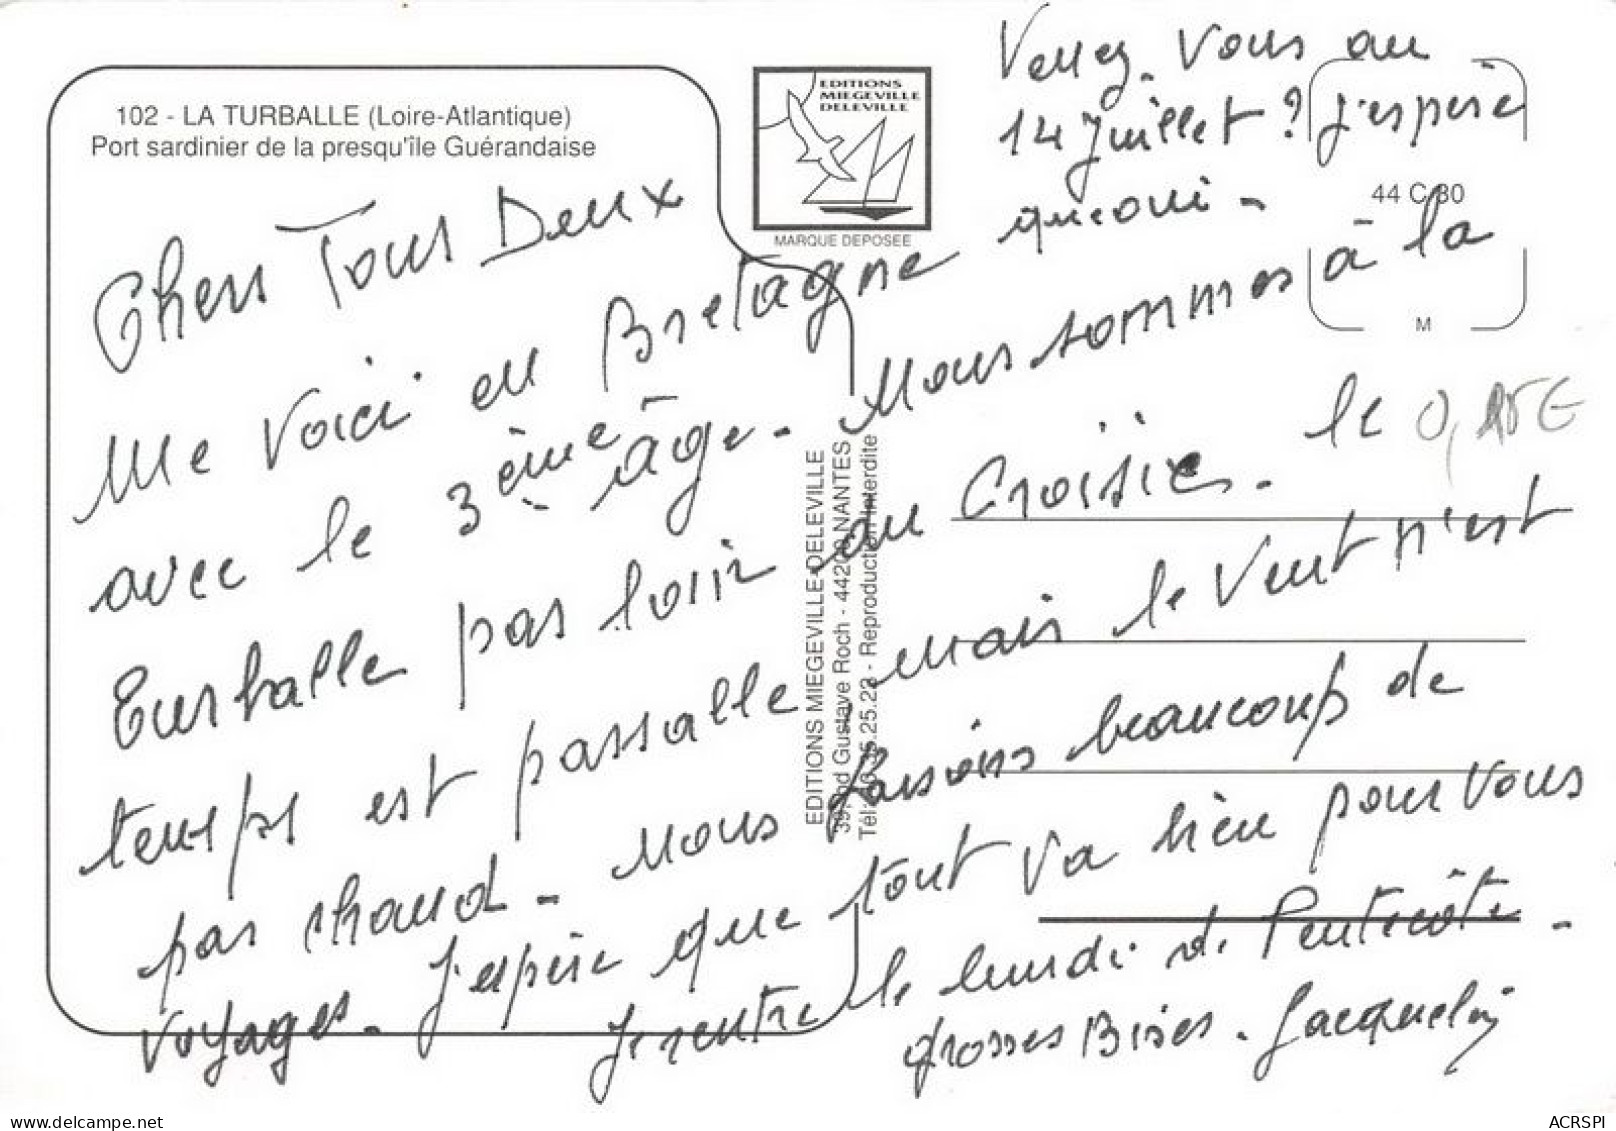 102 - LA TURBALLE (Loire-Atlantique)
Port sardinier de la presqu'île Guérandaise
EDITIONS
MIEGEVILLE
DELEVILLE
MARQUE DEPOSEE
44 C 80
M
EDITIONS MIEGEVILLE-DELEVILLE
Gustave Roch - 44200 NANTES
25.22 - Reproduction Interdite
Venez. Vous au
14 Juillet ? J'espère
que oui -
Chers Tous Deux
Me Voici en Bretagne
avec le 3ème âge. Nous sommes à la
Turballe pas loin du Croisic. le
temps est passalle mais le Vent n'est
pas chaud - Nous faisons beaucoup de
Voyages. J'espère que tout va bien pour Vous
Je rentre le lundi de Pentecôte -
Grosses Bises - Jacqueline
0,15€
www.delcampe.net
ACRSPI